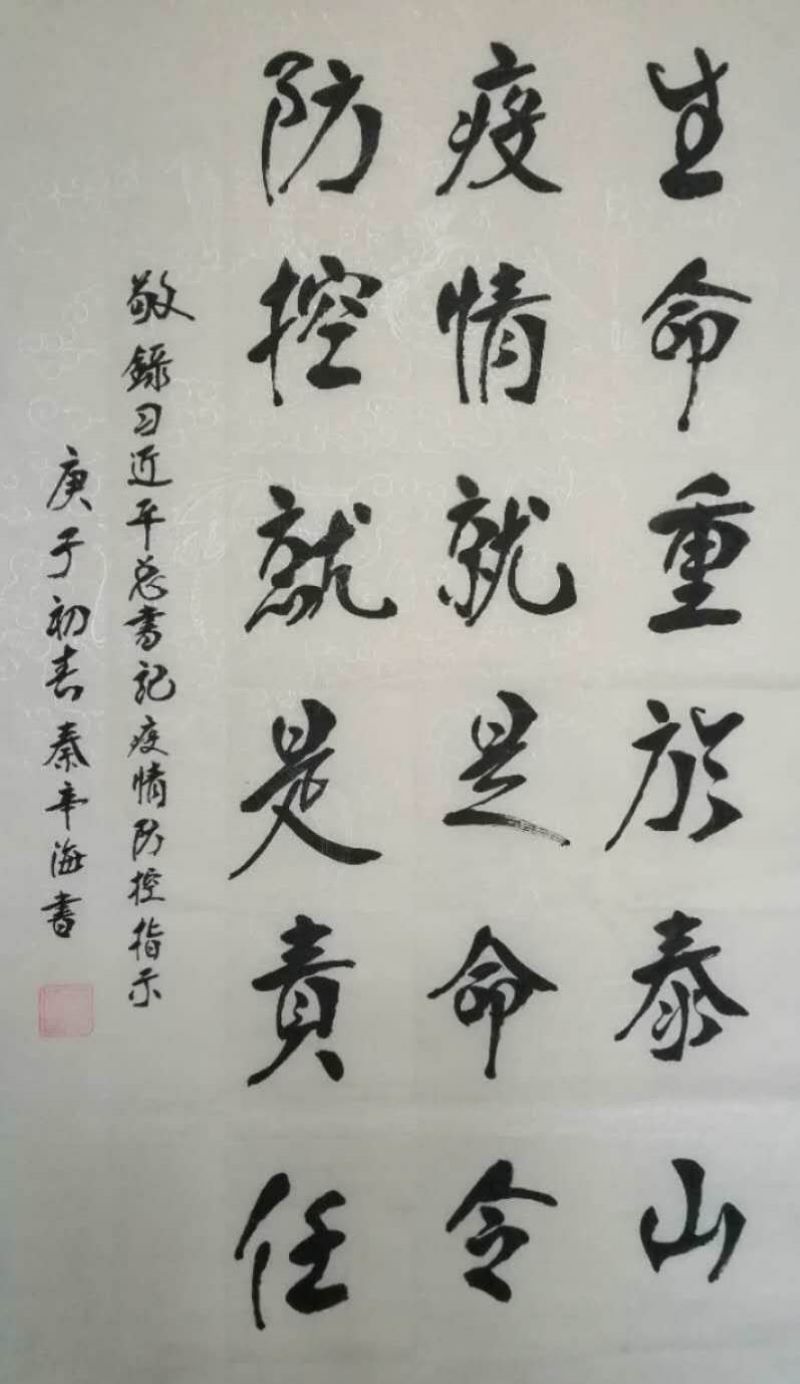 生命重於泰山
疫情就是命令
防控就是責任
敬錄习近平总書記疫情防控指示
庚子初春秦辛海書